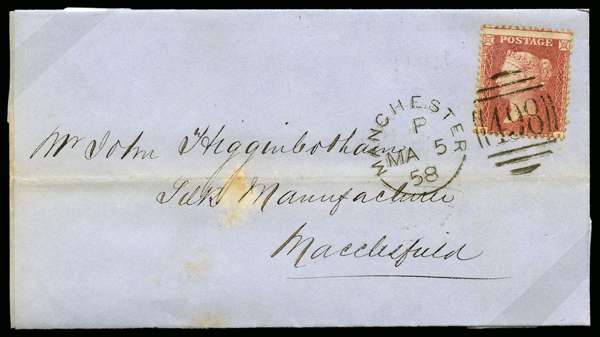 POSTAGE
MANCHESTER
P
MA 5
58
498
Mr John Higginbotham
Silk Manufacturer
Macclesfield